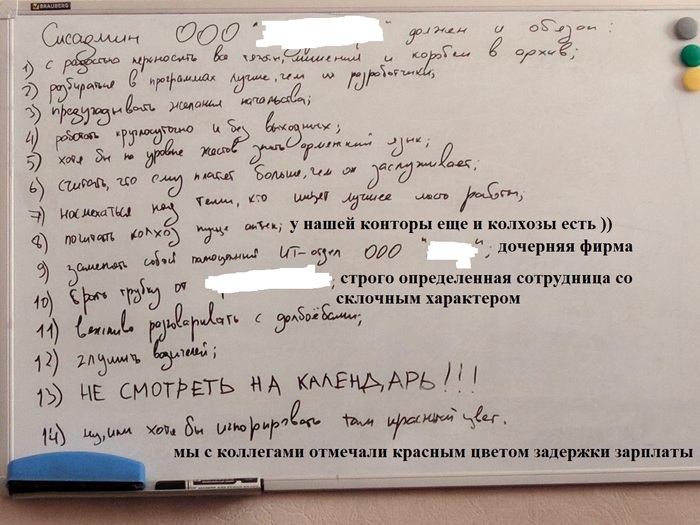 BRAUBERG
Сисадмин ООО " должен и обязан:
1) с радостью переносить все тяготы, лишения и коробки в архив;
2) разбираться в программах лучше, чем их разработчики;
3) предугадывать желания начальства;
4) работать круглосуточно и без выходных;
5) хотя бы на уровне жестов знать армянский язык;
6) считать, что ему платят больше, чем он заслуживает;
7) насмехаться над теми, кто ищет лучшее место работы;
8) почитать колхоз пуще аптек; у нашей конторы еще и колхозы есть ))
9) заменять собой полноценный ИТ-отдел ООО " "; дочерняя фирма
10) брать трубку от ; строго определенная сотрудница со
склочным характером
11) вежливо разговаривать с долбоёбами;
12) глушить водителей;
13) НЕ СМОТРЕТЬ НА КАЛЕНДАРЬ!!!
14) ну, или хотя бы игнорировать там красный цвет.
мы с коллегами отмечали красным цветом задержки зарплаты